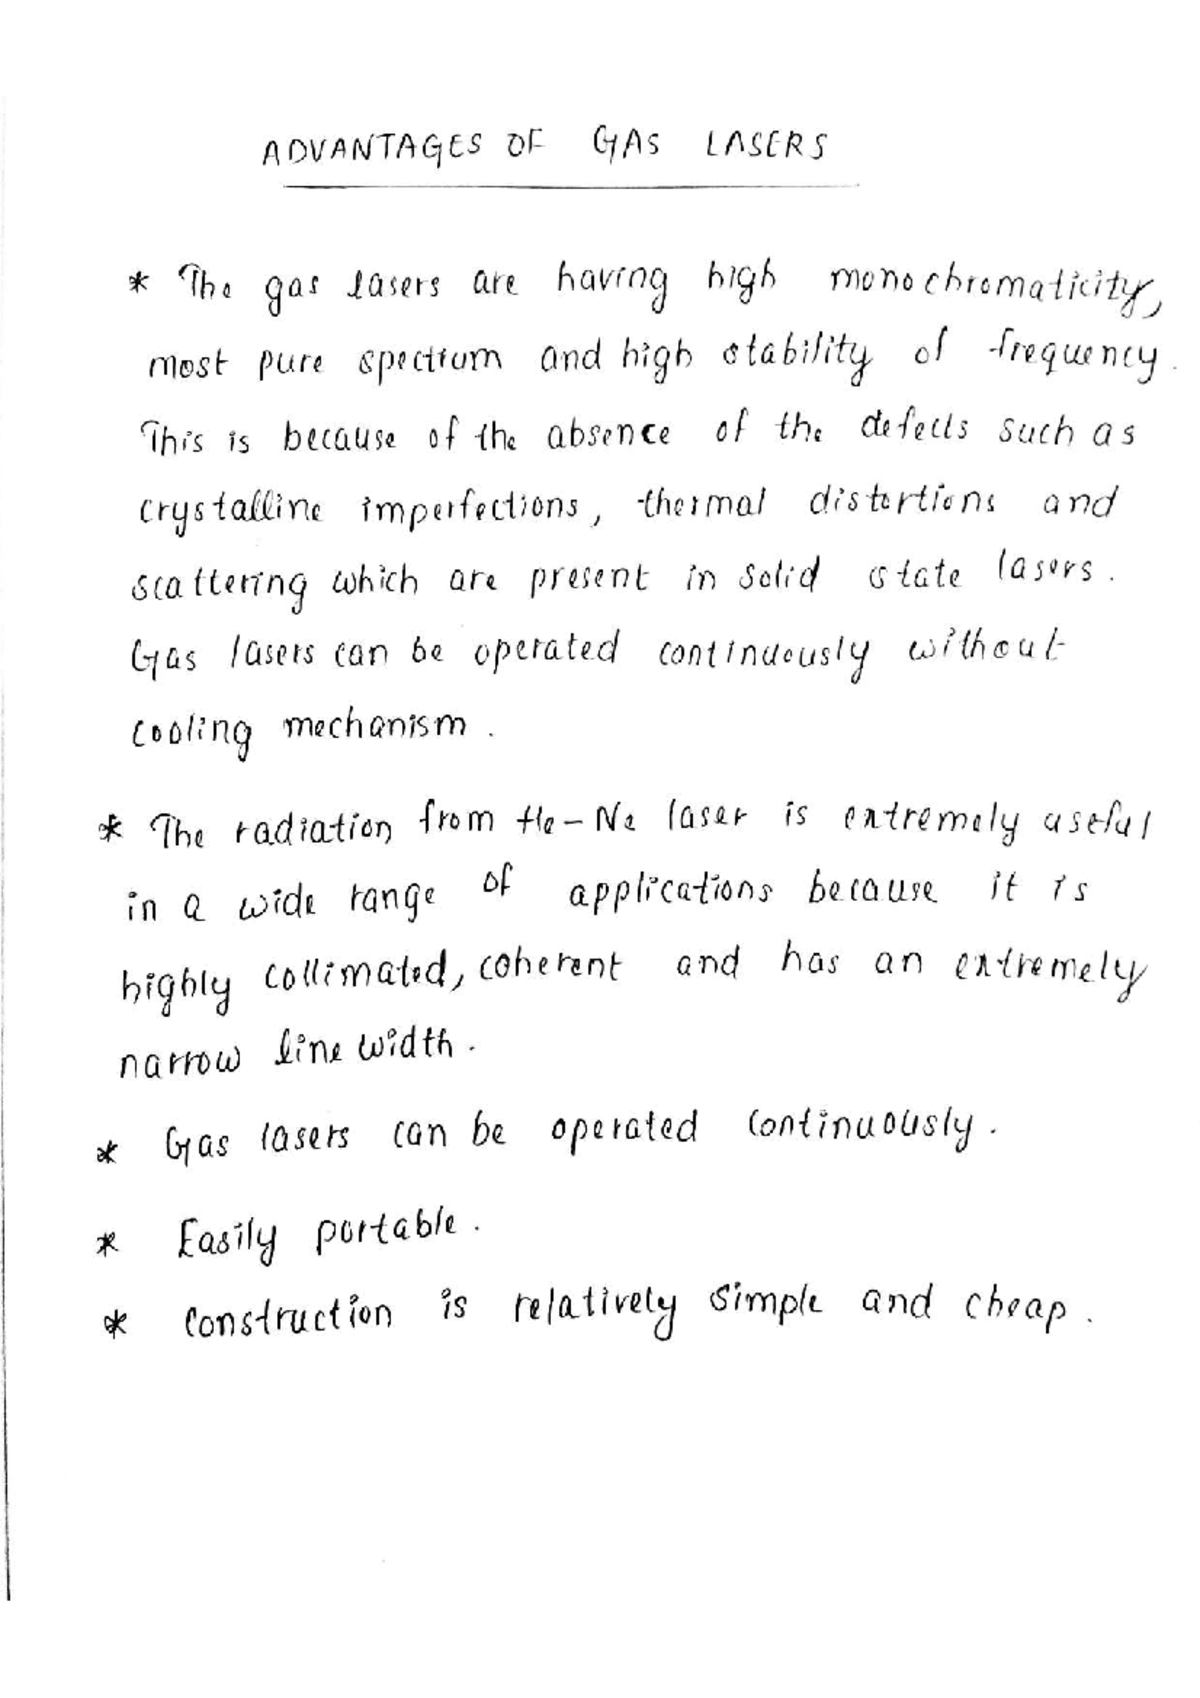 ADVANTAGES OF GAS LASERS
* The gas lasers are having high monochromaticity,
most pure spectrum and high stability of frequency.
This is because of the absence of the defects such as
crystalline imperfections, thermal distortions and
scattering which are present in solid state lasers.
Gas lasers can be operated continuously without
cooling mechanism.
* The radiation from He-Ne laser is extremely useful
in a wide range of applications because it is
highly collimated, coherent and has an extremely
narrow line width.
* Gas lasers can be operated continuously.
* Easily portable.
* Construction is relatively simple and cheap.